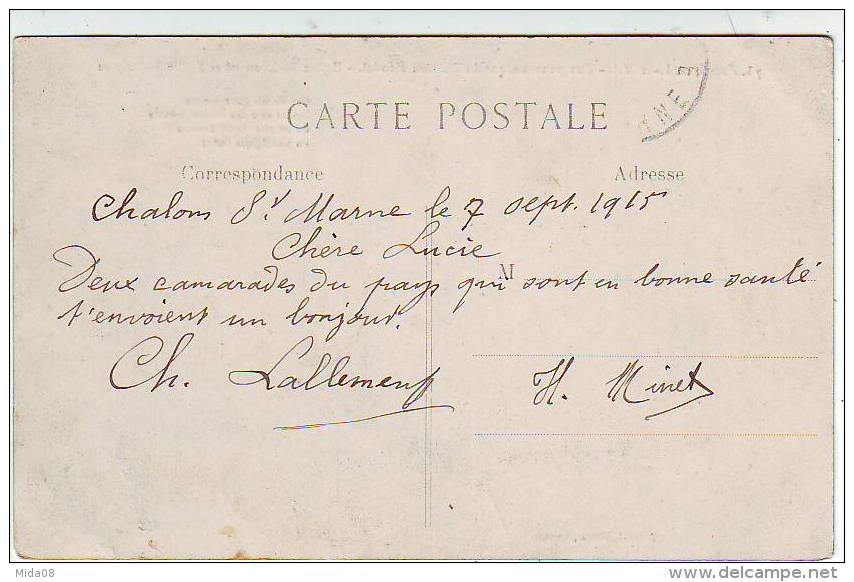 CARTE POSTALE
Correspondance
Adresse
Chalons s/ Marne le 7 sept. 1915
Chère Lucie
M
Deux camarades du pays qui sont en bonne santé
t'envoient un bonjour.
Ch. Lallement
H. Minet
Mida08
www.delcampe.net